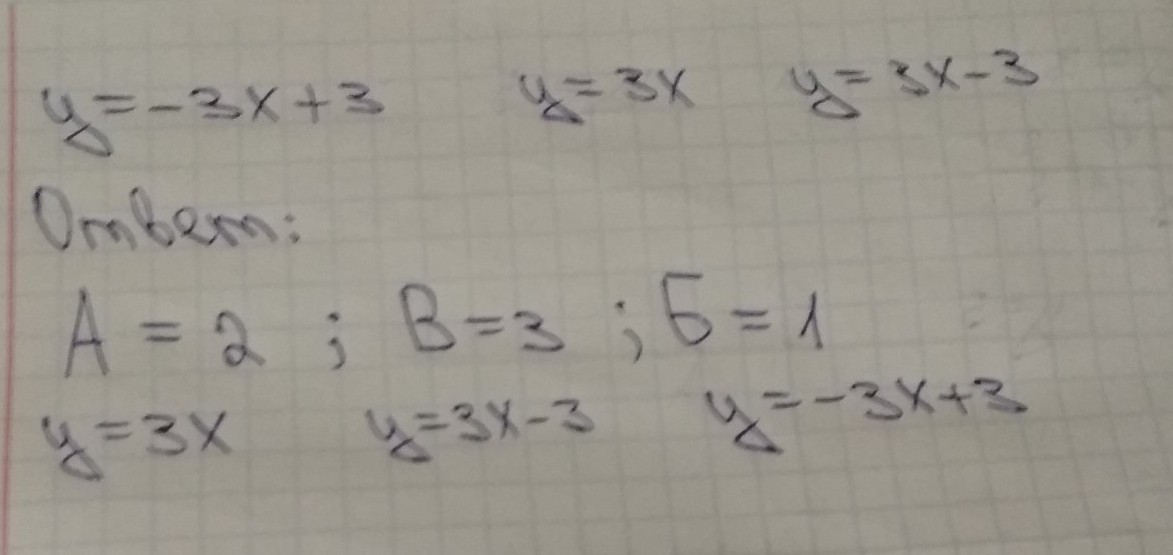 y=-3x+3 y=3x y=3x-3
Ответ:
А=2; В=3; Б=1
y=3x y=3x-3 y=-3x+3